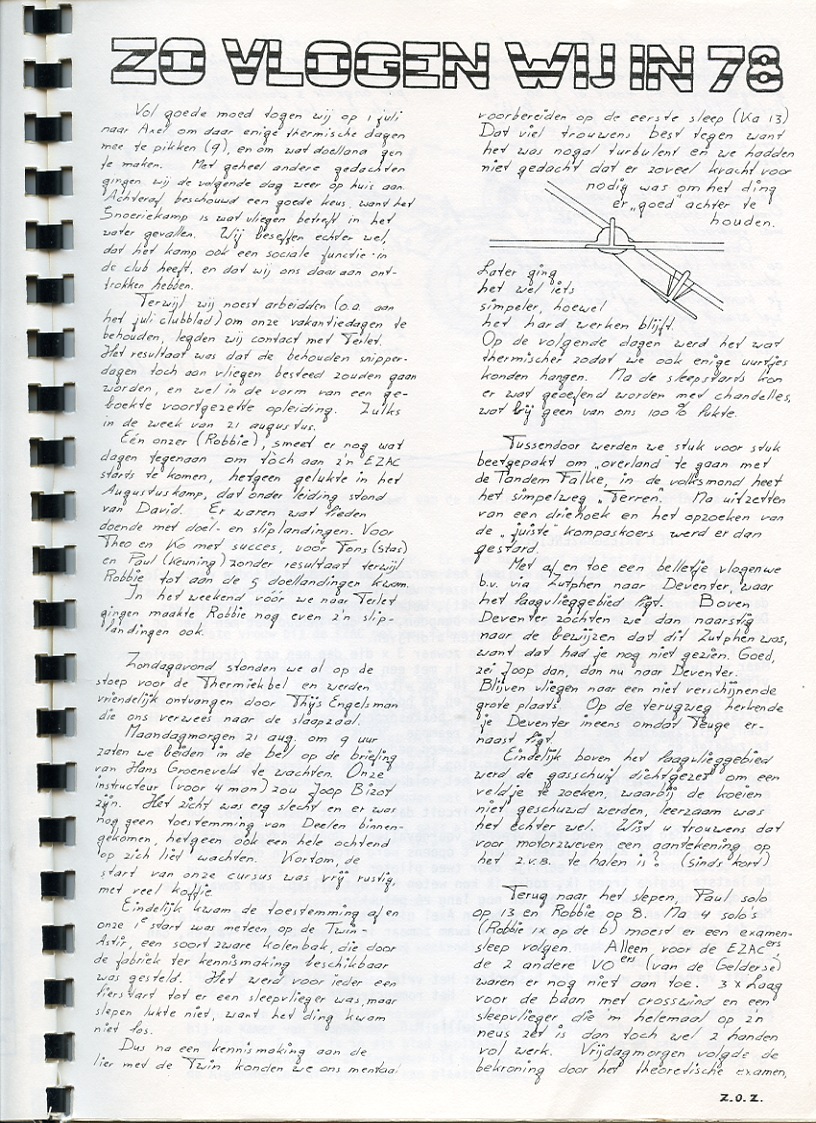 ZO VLOGEN WIJ IN 78
Vol goede moed togen wij op 1 juli
naar Axel om daar enige thermische dagen
mee te pikken (9), en om wat doellana gen
te maken. Met geheel andere gedachten
gingen wij de volgende dag weer op huis aan.
Achteraf beschouwd een goede keus, want het
Snoeriekamp is wat vliegen betreft in het
water gevallen. Wij beseffen echter wel,
dat het kamp ook een sociale functie in
de club heeft, en dat wij ons daar aan ont-
trokken hebben.
Terwijl wij noest arbeidden (o.a. aan
het juli clubblad) om onze vakantiedagen te
behouden, legden wij contact met Terlet.
Het resultaat was dat de behouden snipper-
dagen toch aan vliegen besteed zouden gaan
worden, en wel in de vorm van een ge-
boekte voortgezette opleiding. Zulks
in de week van 21 augustus.
Eén onzer (Robbie), smeet er nog wat
dagen tegenaan om tòch aan z'n EZAC
starts te komen, hetgeen gelukte in het
Augustuskamp, dat onder leiding stond
van David. Er waren wat lieden
doende met doel- en sliplandingen. Voor
Theo en Ko met succes, voor Fons (Stas)
en Paul (Keuning) zonder resultaat terwijl
Robbie tot aan de 5 doellandingen kwam.
In het weekend vóór we naar Terlet
gingen maakte Robbie nog even z'n slip-
landingen ook.
Zondagavond stonden we al op de
stoep voor de Thermiekbel en werden
vriendelijk ontvangen door Thijs Engelsman
die ons verwees naar de slaapzaal.
Maandagmorgen 21 aug. om 9 uur
zaten we beiden in de bel op de briefing
van Hans Groeneveld te wachten. Onze
instructeur (voor 4 man) zou Joop Bizot
zijn. Het zicht was erg slecht en er was
nog geen toestemming van Deelen binnen-
gekomen, hetgeen ook een hele ochtend
op zich liet wachten. Kortom, de
start van onze cursus was vrij rustig,
met veel koffie
Eindelijk kwam de toestemming af en
onze 1e start was meteen op de Twin-
Astir, een soort zware kolenbak, die door
de fabriek ter kennismaking beschikbaar
was gesteld. Het werd voor ieder een
lierstart tot er een sleepvlieger was, maar
slepen lukte niet, want het ding kwam
niet los.
Dus na een kennismaking aan de
lier met de Twin konden we ons mentaal
voorbereiden op de eerste sleep (Ka 13)
Dat viel trouwens best tegen want
het was nogal turbulent en we hadden
niet gedacht dat er zoveel kracht voor
nodig was om het ding
er „goed” achter te
houden.
Later ging
het wel iets
simpeler, hoewel
het hard werken blijft.
Op de volgende dagen werd het wat
thermischer zodat we ook enige uurtjes
konden hangen. Na de sleepstarts kon
er wat geoefend worden met chandelles,
wat bij geen van ons 100 % lukte.
Tussendoor werden we stuk voor stuk
beetgepakt om „overland” te gaan met
de Tandem Falke, in de volksmond heet
het simpelweg „Terren”. Na uitzetten
van een driehoek en het opzoeken van
de „juiste” kompaskoers werd er dan
gestard.
Met af en toe een belletje vlogen we
b.v. via Zutphen naar Deventer, waar
het laagvlieggebied ligt. Boven
Deventer zochten we dan naarstig
naar de bewijzen dat dit Zutphen was,
want dat had je nog niet gezien. Goed,
zei Joop dan, dan nu naar Deventer.
Blijven vliegen naar een niet verschijnende
grote plaats. Op de terugweg herkende
je Deventer ineens omdat Teuge er-
naast ligt.
Eindelijk boven het laagvlieggebied
werd de gasschuif dichtgezet om een
veldje te zoeken, waarbij de koeien
niet geschuwd werden, leerzaam was
het echter wel. Wist u trouwens dat
voor motorzweven een aantekening op
het z.v.B. te halen is? (sinds kort)
Terug naar het slepen, Paul solo
op 13 en Robbie op 8. Na 4 solo's
(Robbie 1x op de 6) moest er een examen-
sleep volgen. Alleen voor de EZACers,
de 2 andere VOers (van de Gelderse)
waren er nog niet aan toe. 3 x laag
voor de baan met crosswind en een
sleepvlieger die 'm helemaal op z'n
neus zet is dan toch wel 2 handen
vol werk. Vrijdagmorgen volgde de
bekroning door het theoretische examen,
Z.O.Z.